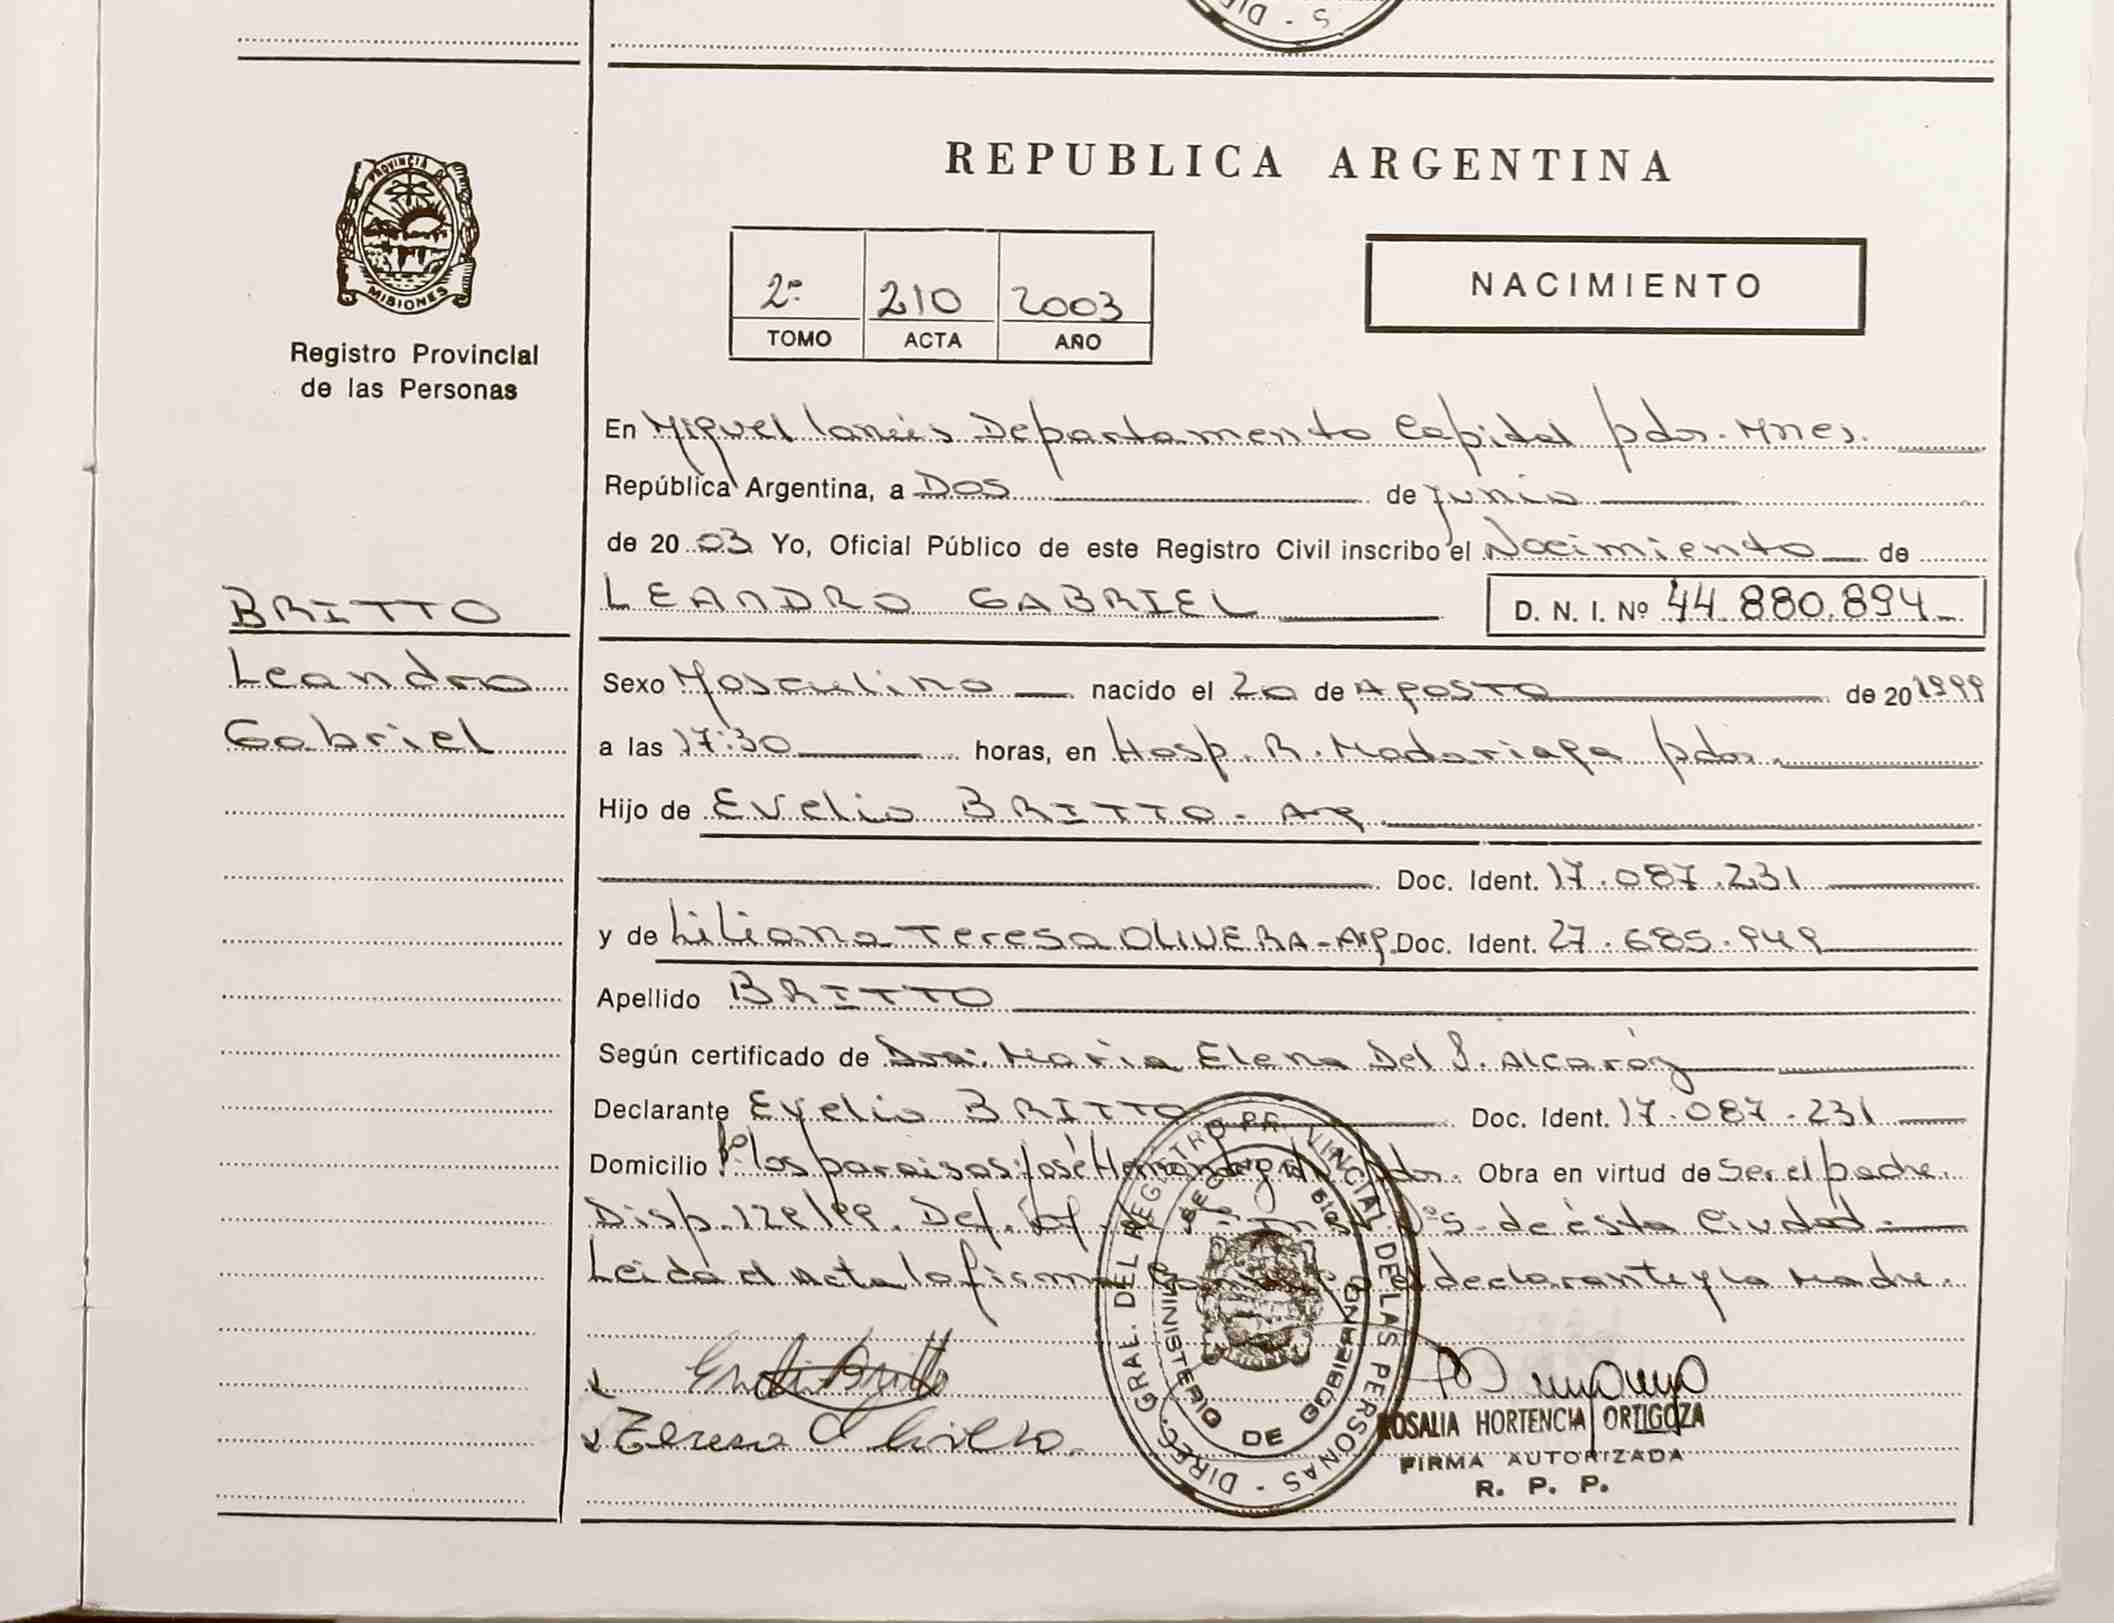 S - DI
REPUBLICA ARGENTINA
PROVINCIA DE
MISIONES
Registro Provincial
de las Personas
2º 210 2003
TOMO ACTA AÑO
NACIMIENTO
En Miguel Lanús Departamento Capital pdas. Mnes.
República Argentina, a Dos de junio
de 2003 Yo, Oficial Público de este Registro Civil inscribo el Nacimiento de
LEANDRO GABRIEL D. N. I. Nº 44.880.894
BRITTO
Leandro
Gabriel
Sexo Masculino nacido el 20 de Agosto de 20 1999
a las 17:30 horas, en Hosp. R. Madariaga pdas.
Hijo de Evelio BRITTO - Arg.
Doc. Ident. 17.087.231
y de Liliana Teresa OLIVERA - Arg. Doc. Ident. 27.685.949
Apellido BRITTO
Según certificado de Dra. Maria Elena Del S. Alcaráz
Declarante Evelio BRITTO Doc. Ident. 17.087.231
Domicilio Bº los paraisos José Hernandez pdas. Obra en virtud de Ser el padre.
Disp. 129/99. Def. de ésta Ciudad.
Leida el Acta la firma declarante y la Madre.
DIREC. GRAL. DEL REGISTRO PROVINCIAL DE LAS PERSONAS -
MINISTERIO DE GOBIERNO
Evelio Britto
Teresa Olivera
ROSALIA HORTENCIA ORTIGOZA
FIRMA AUTORIZADA
R. P. P.